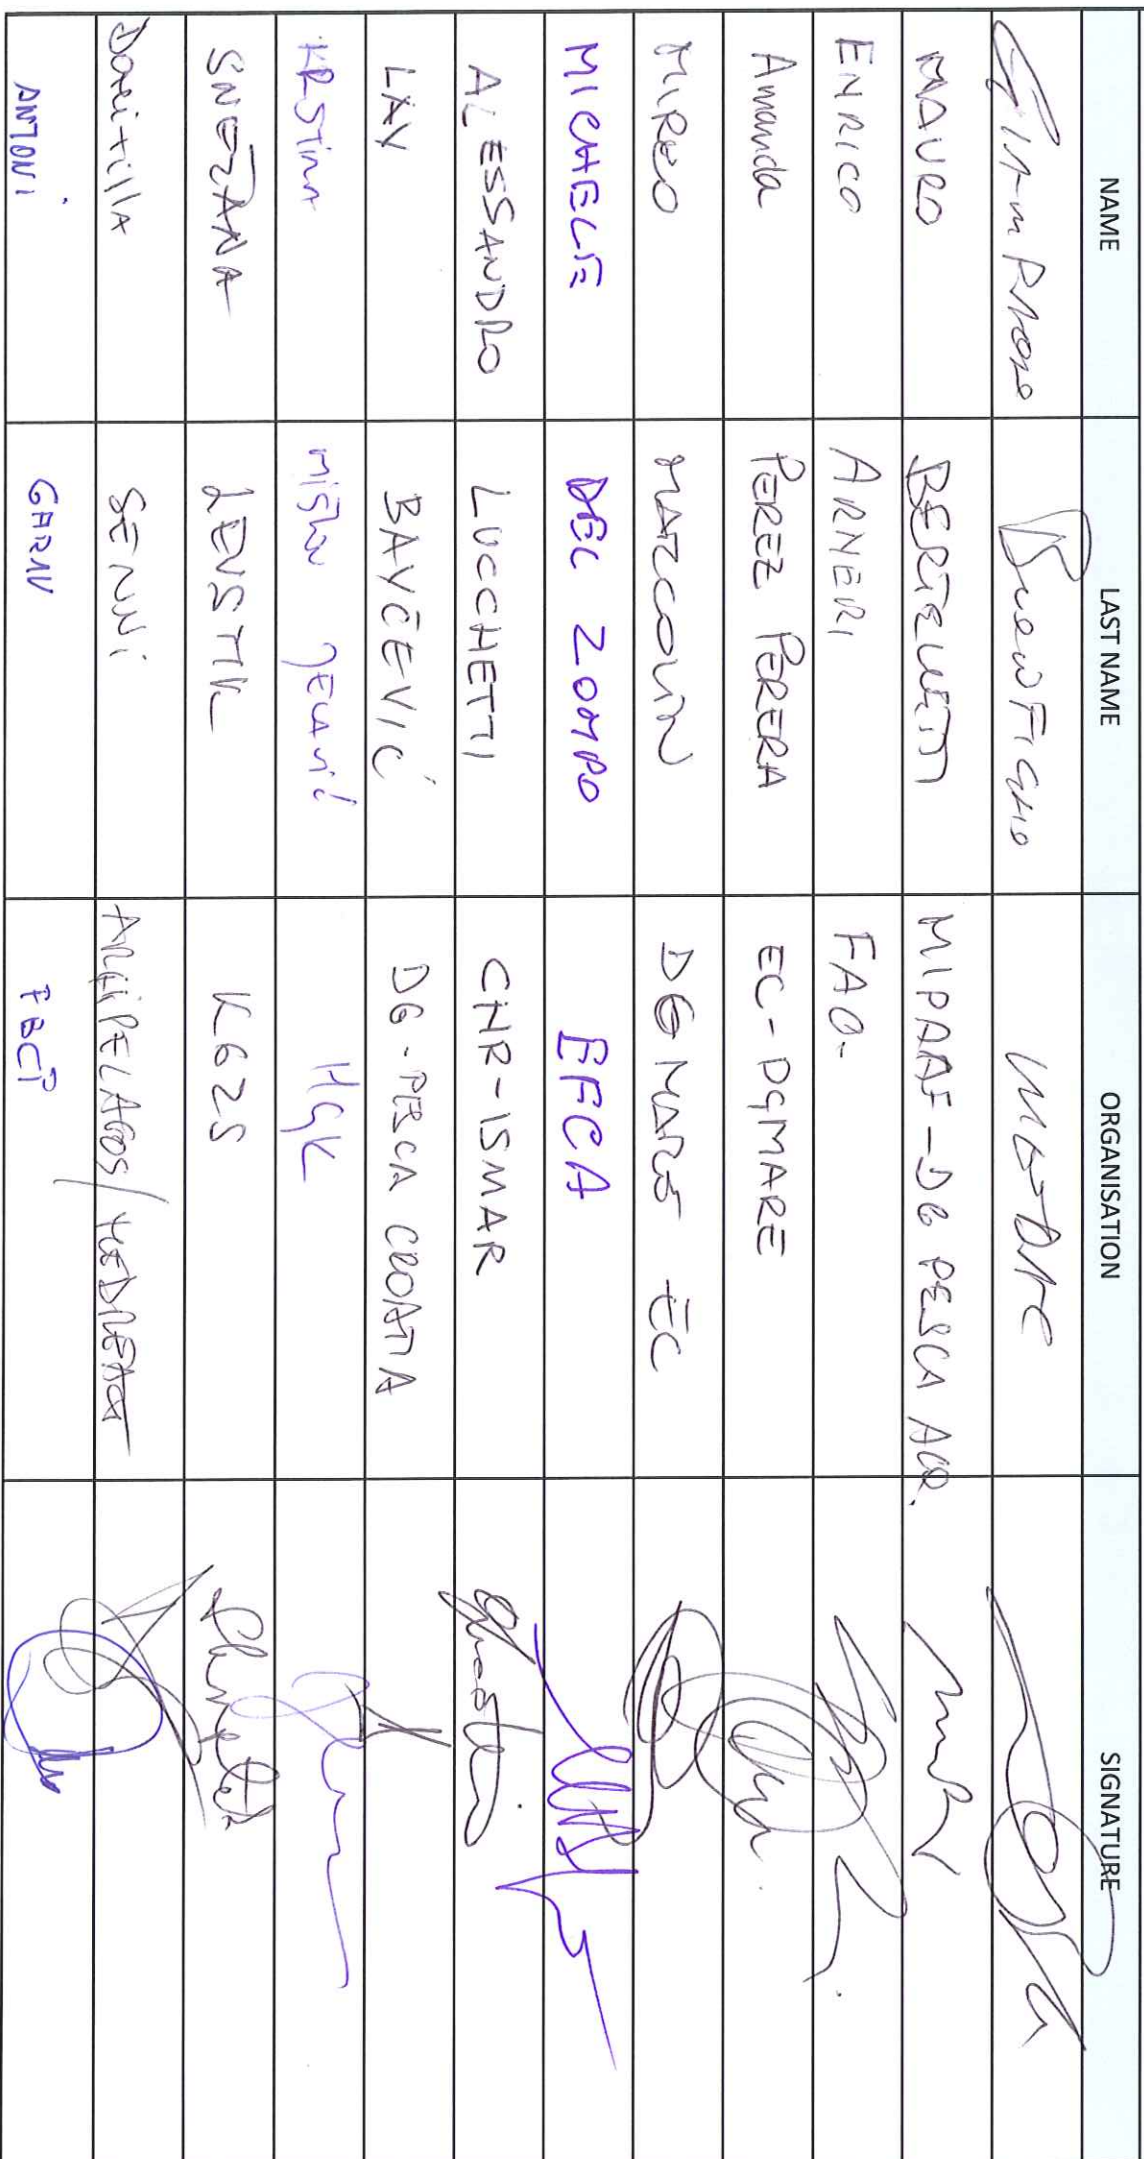 NAME LAST NAME ORGANISATION SIGNATURE
MAURO BERTELLETTI MIPAAF-DG PESCA ACQ.
ENRICO ARNERI FAO-
Amanda PEREZ PERERA EC-DGMARE
MIRKO MARCOLIN DG MARE EC
MICHELE DEL ZOMPO EFCA
ALESSANDRO LUCCHETTI CNR-ISMAR
LAV BAVČEVIĆ DG-PESCA CROATIA
KRSTINA MIŠLOV JELAVIĆ HGK
SNEŽANA LEVSTIK KGZS
DOMITILLA SENNI ARCHIPELAGOS/MEDREACT
ANTONI GARAU FBCP